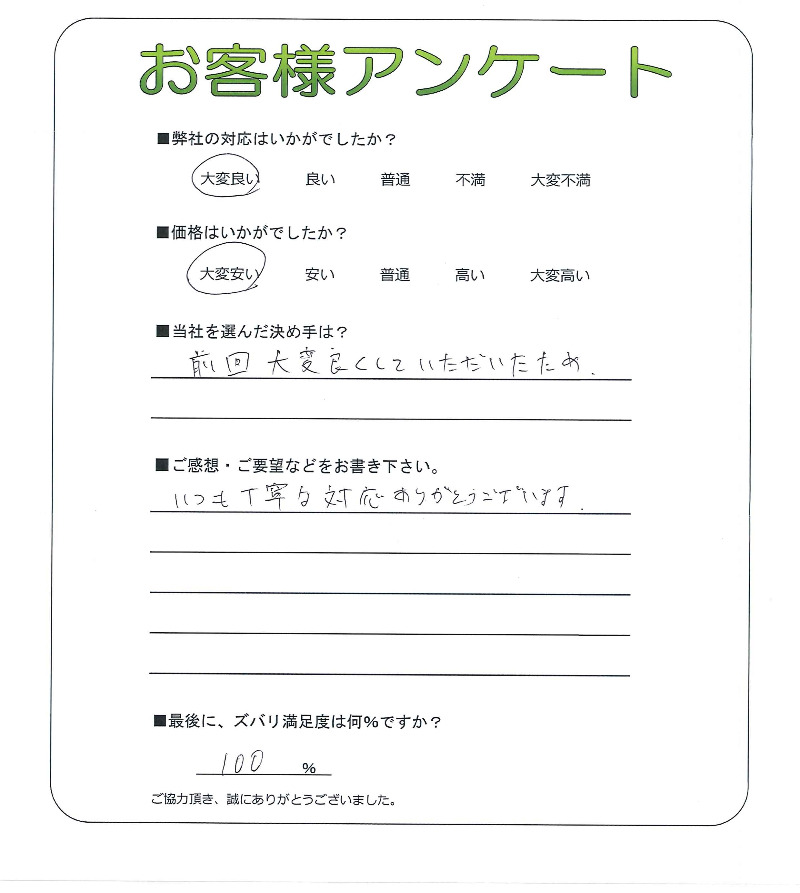 お客様アンケート
■弊社の対応はいかがでしたか？
大変良い 良い 普通 不満 大変不満
■価格はいかがでしたか？
大変安い 安い 普通 高い 大変高い
■当社を選んだ決め手は？
前回大変良くしていただいたため.
■ご感想・ご要望などをお書き下さい。
いつも丁寧な対応ありがとうございます.
■最後に、ズバリ満足度は何%ですか？
100 %
ご協力頂き、誠にありがとうございました。